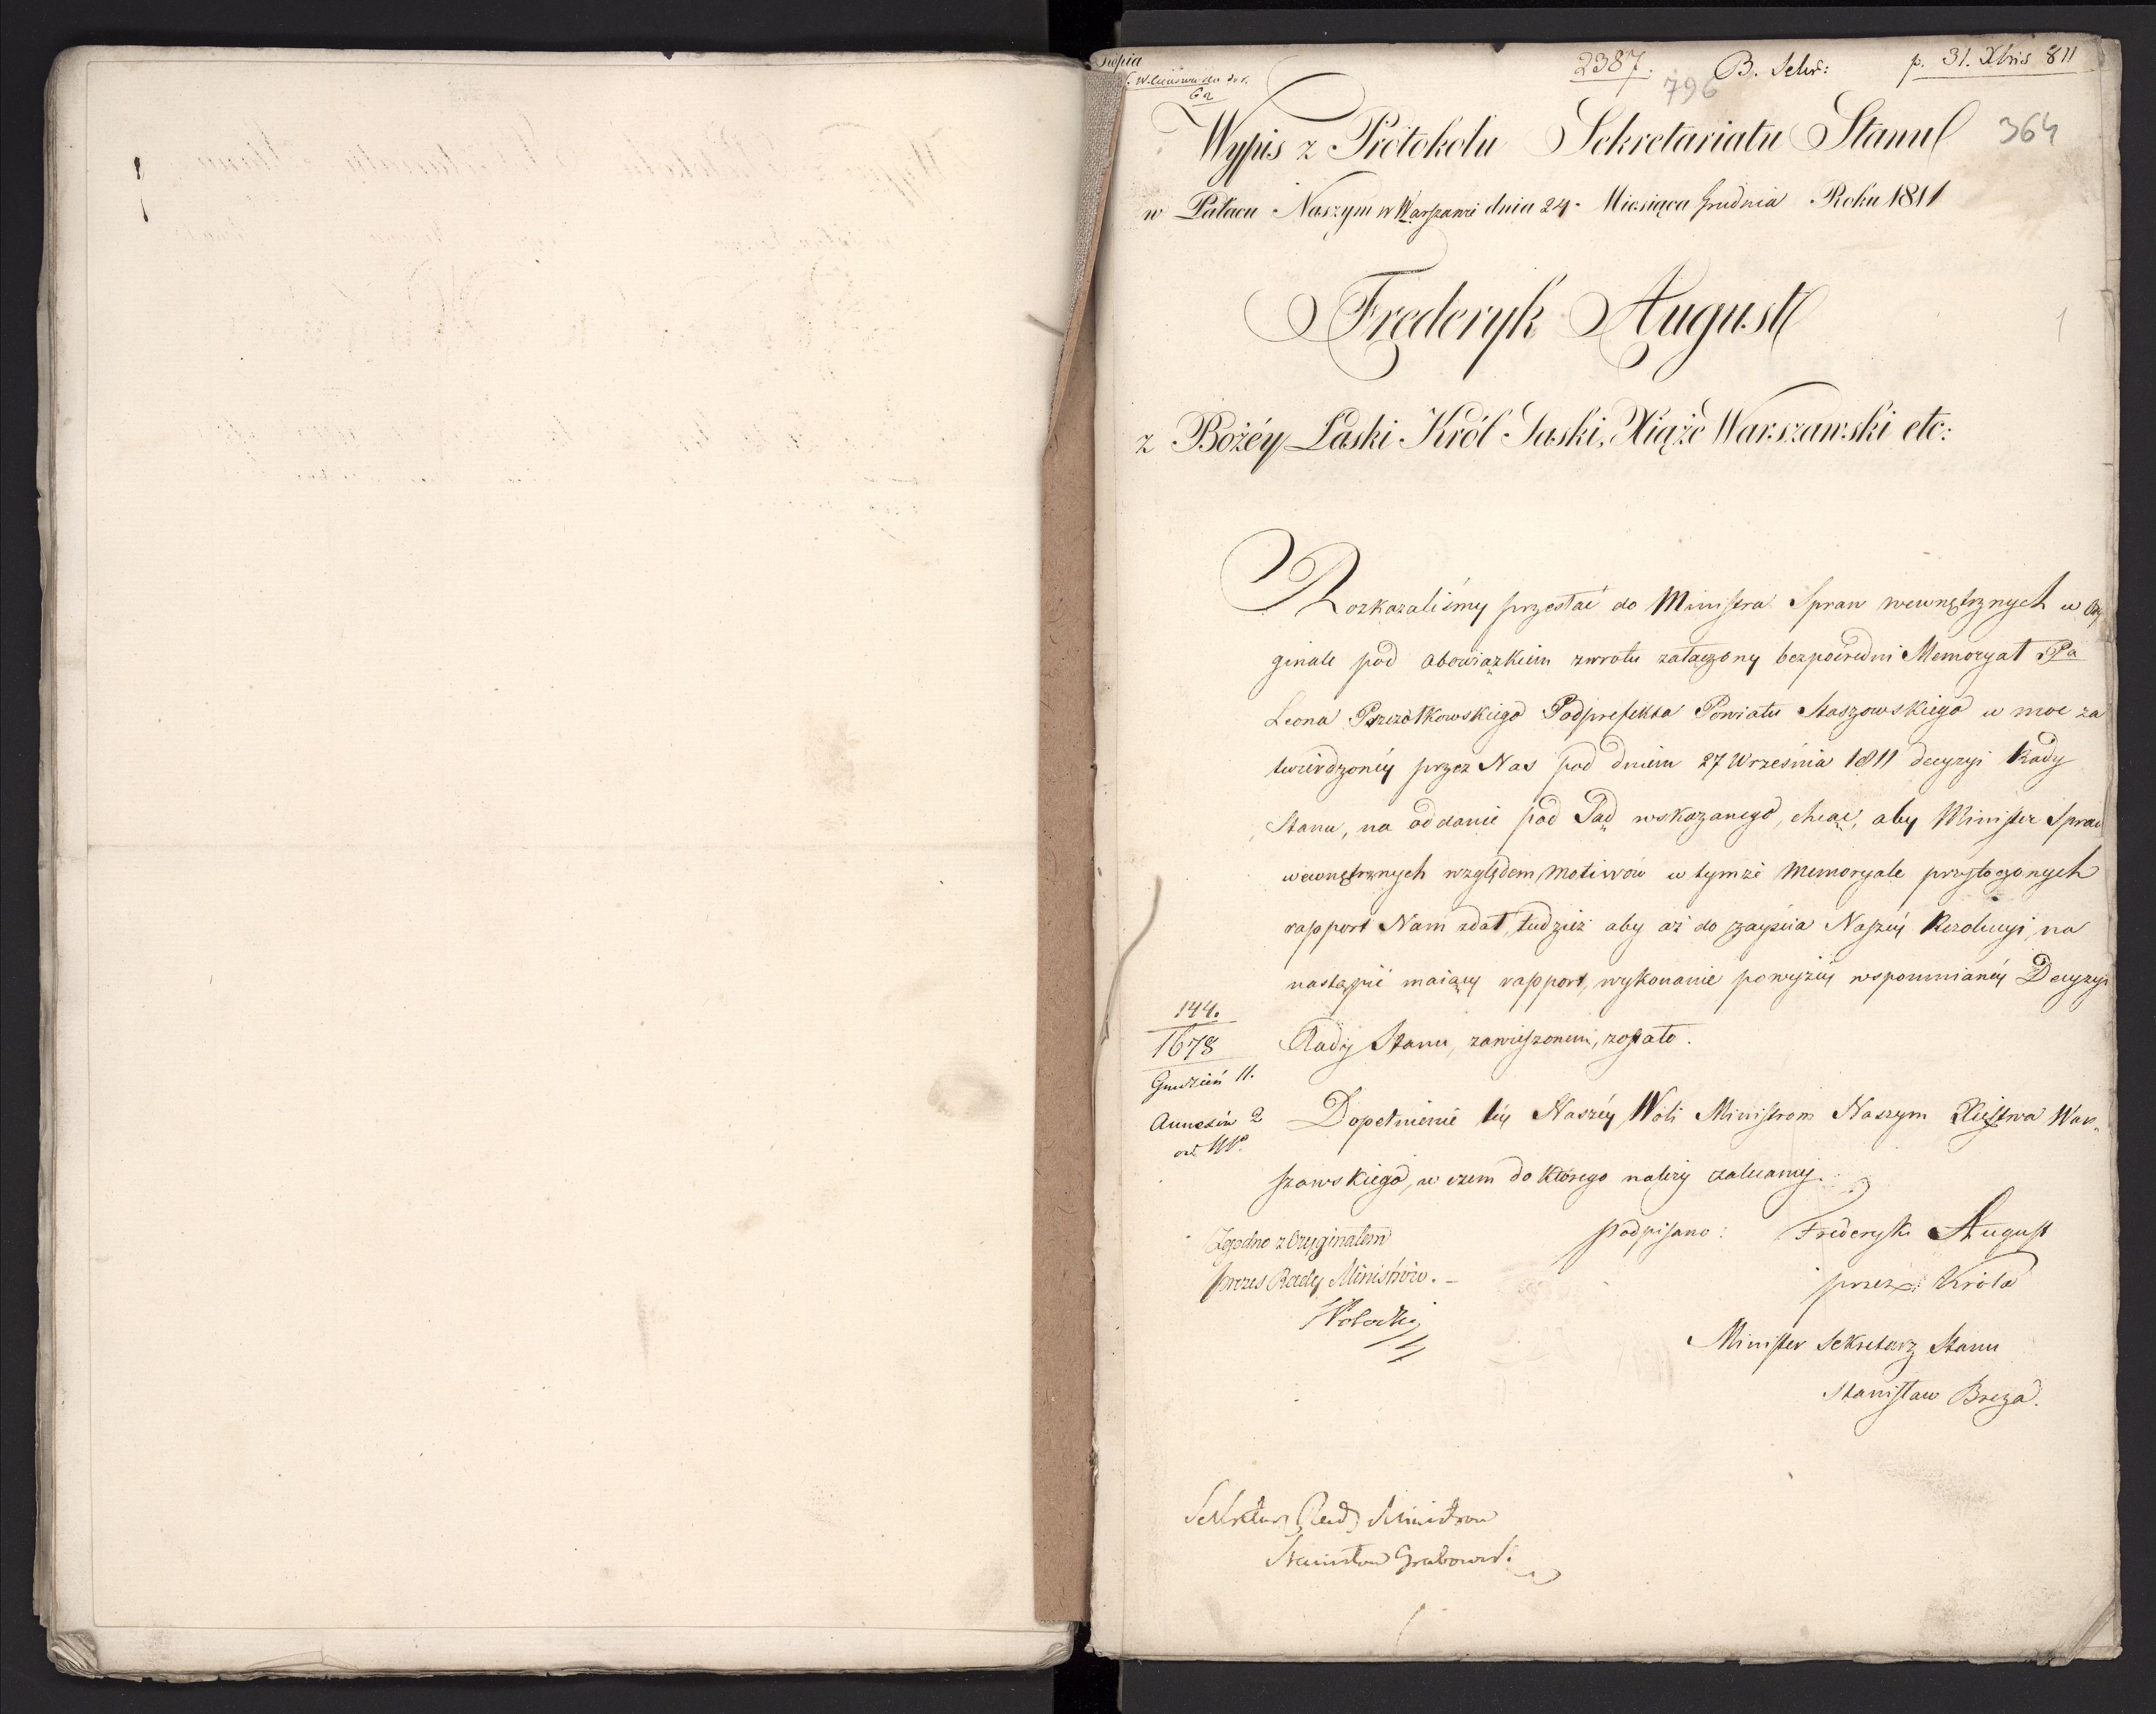 Kopia
2387.
796
B. Sekr:
p. 31. Xbris 811
62
Wypis z Protokolu Sekretariatu Stanu
364
w Pałacu Naszym w Warszawie dnia 24. Miesiąca Grudnia Roku 1811
Frederyk August
1
z Bożéy Łaski Król Saski, Xiążę Warszawski etc:
Rozkazaliśmy przesłać do Ministra Spraw wewnętrznych w Ory
ginale pod obowiązkiem zwrotu załączony bezpośredni Memoryał Pa
Leona Pszczółkowskiego Podprefekta Powiatu Staszowskiego w moc za
twierdzonéy przez Nas pod dniem 27 Września 1811 decyzyi Rady
Stanu, na oddanie pod Sąd wskazanego, chcąc, aby Minister Spraw
wewnętrznych względem motivów w tymże Memoryale przytoczonych
rapport Nam zdał, tudzież aby aż do zayścia Naszéy Rezolucyi na
nastąpić maiący rapport, wykonanie powyżéy wspomnianéy Decyzyi
Rady Stanu, zawieszonem, zostało.
144.
1678
Grudzień 11.
Annexów 2
Dopełnienie téy Naszéy Woli Ministrom Naszym Xięstwa War„
szawskiego, w czem do którego należy zalecamy.
Zgodno z Oryginałem
Prezes Rady Ministrów.
podpisano: Frederyk August
przez Króla
Minister Sekretarz Stanu
Stanisław Breza.
Sekretarz Rady Ministrów
Stanisław Grabowski